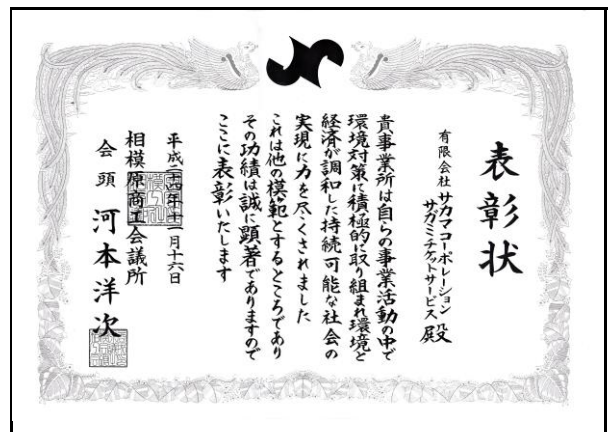 表彰状
有限会社サカマコーポレーション
サガミチケットサービス 殿
貴事業所は自らの事業活動の中で
環境対策に積極的に取り組まれ環境と
経済が調和した持続可能な社会の
実現に力を尽くされました
これは他の模範とするところであり
その功績は誠に顕著でありますので
ここに表彰いたします
平成二十四年十一月十六日
相模原商工会議所
会頭 河本洋次